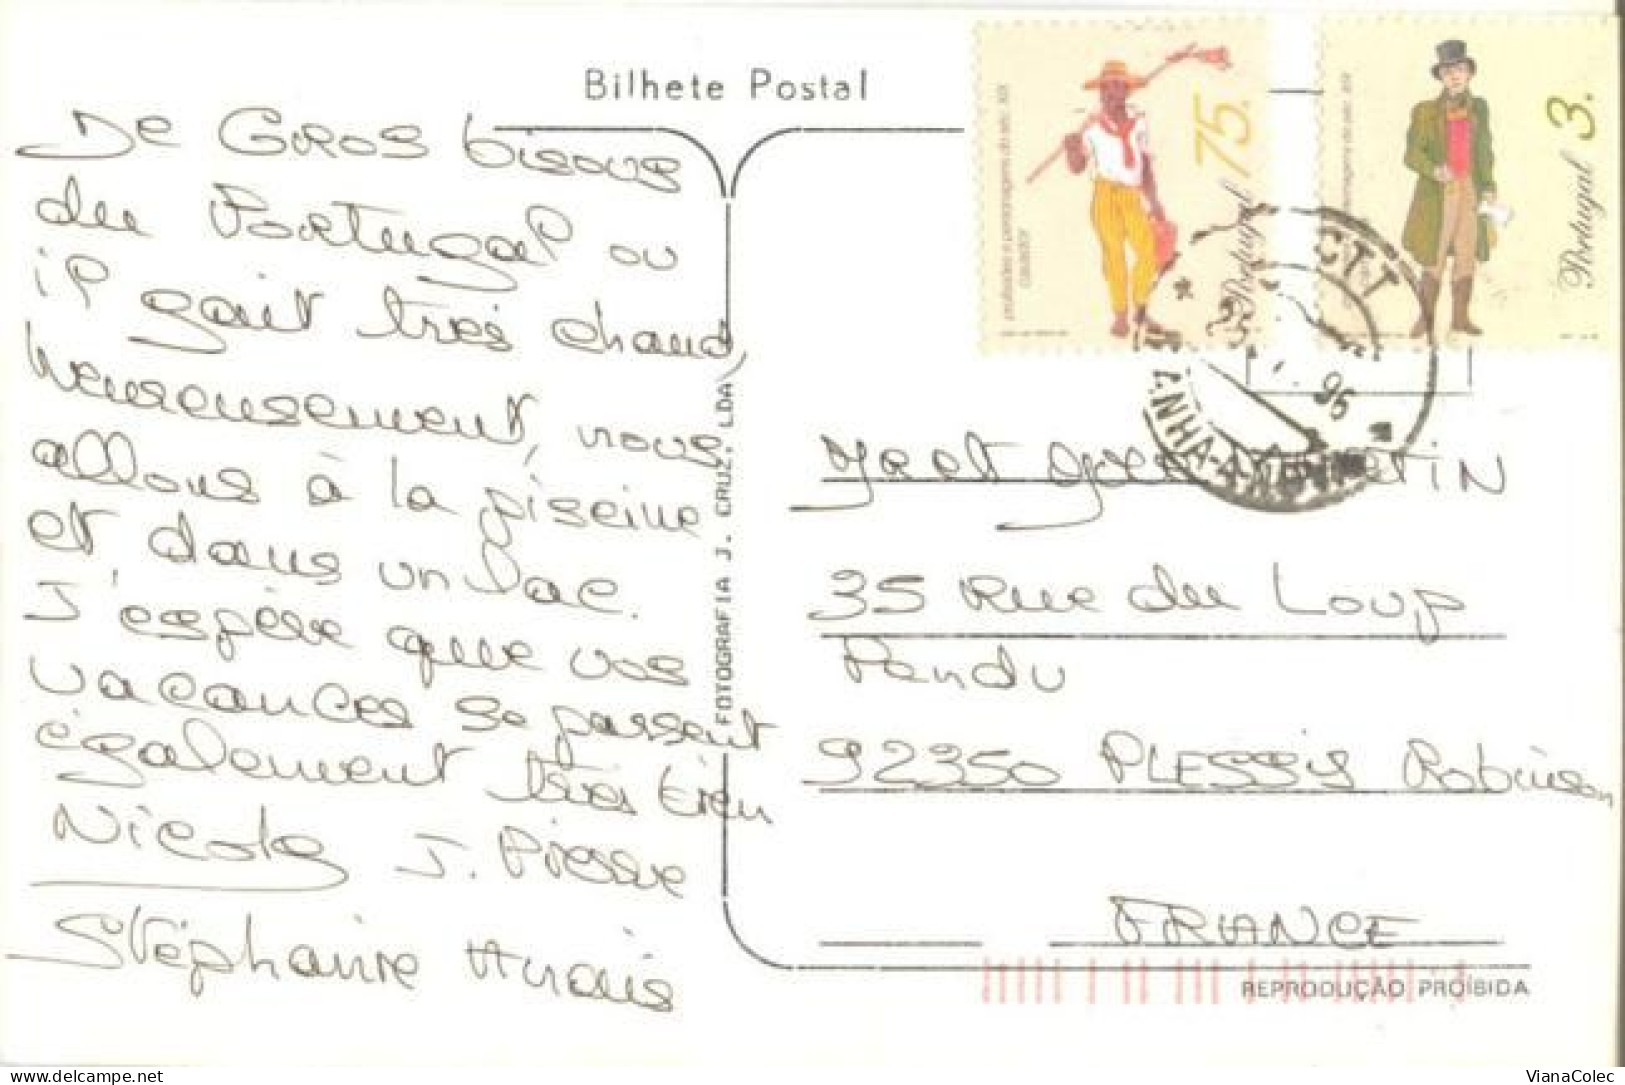 Bilhete Postal
De GROS bisous
du Portugal ou
il fait très chaud
heureusement, nous
allons à la piscine
et dans un lac.
J'espère que vos
vacances se passent
également très bien
Nicole J. Pierre
Stéphanie Anaïs
FOTOGRAFIA J. CRUZ, LDA
profissões e personagens do séc. XIX
Portugal 75.
personagens do séc. XIX
Portugal 3.
CTT
95
35 Rue du Loup
Pendu
92350 PLESSIS Robinson
FRANCE
REPRODUÇÃO PROÍBIDA
VianaColec